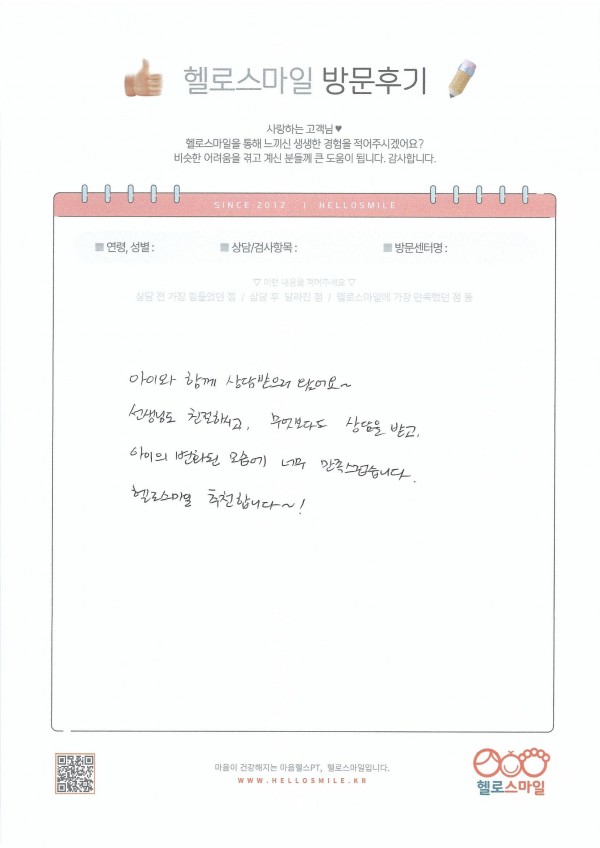 헬로스마일 방문후기
사랑하는 고객님 ♥
헬로스마일을 통해 느끼신 생생한 경험을 적어주시겠어요?
비슷한 어려움을 겪고 계신 분들께 큰 도움이 됩니다. 감사합니다.
SINCE 2012 | HELLOSMILE
연령, 성별 : 상담/검사항목 : 방문센터명 :
▽ 이런 내용을 적어주세요 ▽
상담 전 가장 힘들었던 점 / 상담 후 달라진 점 / 헬로스마일에 가장 만족했던 점 등
아이와 함께 상담받으러 왔어요~
선생님도 친절하시고, 무엇보다도 상담을 받고,
아이의 변화된 모습에 너무 만족스럽습니다.
헬로스마일 추천합니다~!
마음이 건강해지는 마음헬스PT, 헬로스마일입니다.
WWW.HELLOSMILE.KR
헬로스마일